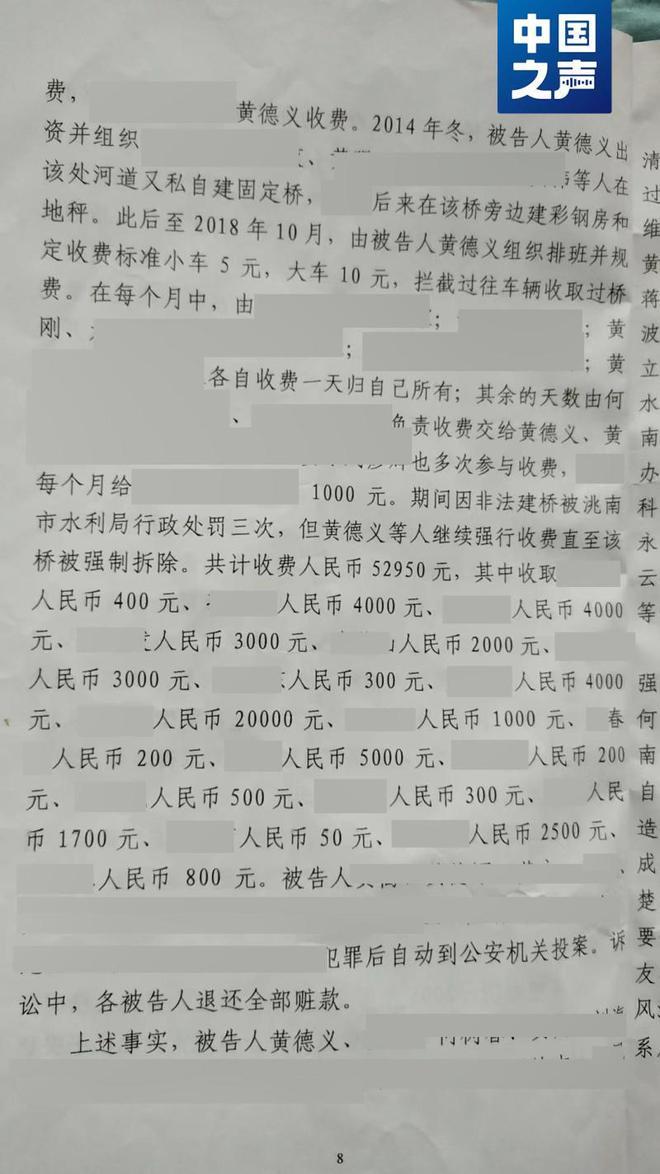 中国
之声
费，
黄德义收费。2014年冬，被告人黄德义出
资并组织
等人在
该处河道又私自建固定桥，
后来在该桥旁边建彩钢房和
地秤。此后至2018年10月，由被告人黄德义组织排班并规
定收费标准小车5元，大车10元，拦截过往车辆收取过桥
费。在每个月中，由
；
；黄
刚、
；
；黄
各自收费一天归自己所有；其余的天数由何
、
负责收费交给黄德义、黄
也多次参与收费，
每个月给
1000元。期间因非法建桥被洮南
市水利局行政处罚三次，但黄德义等人继续强行收费直至该
桥被强制拆除。共计收费人民币52950元，其中收取
人民币400元、
人民币4000元、
人民币4000
元、
人民币3000元、
人民币2000元、
人民币3000元、
人民币300元、
人民币4000
元、
人民币20000元、
人民币1000元、
春
人民币200元、
人民币5000元、
人民币200
元、
人民币500元、
人民币300元、
人民
币1700元、
人民币50元、
人民币2500元、
人民币800元。被告人
犯罪后自动到公安机关投案。诉
讼中，各被告人退还全部赃款。
上述事实，被告人黄德义、
8
清
过
维
黄
蒋
波
立
水
南
办
科
永
云
等
强
何
南
自
造
成
楚
要
友
风
系